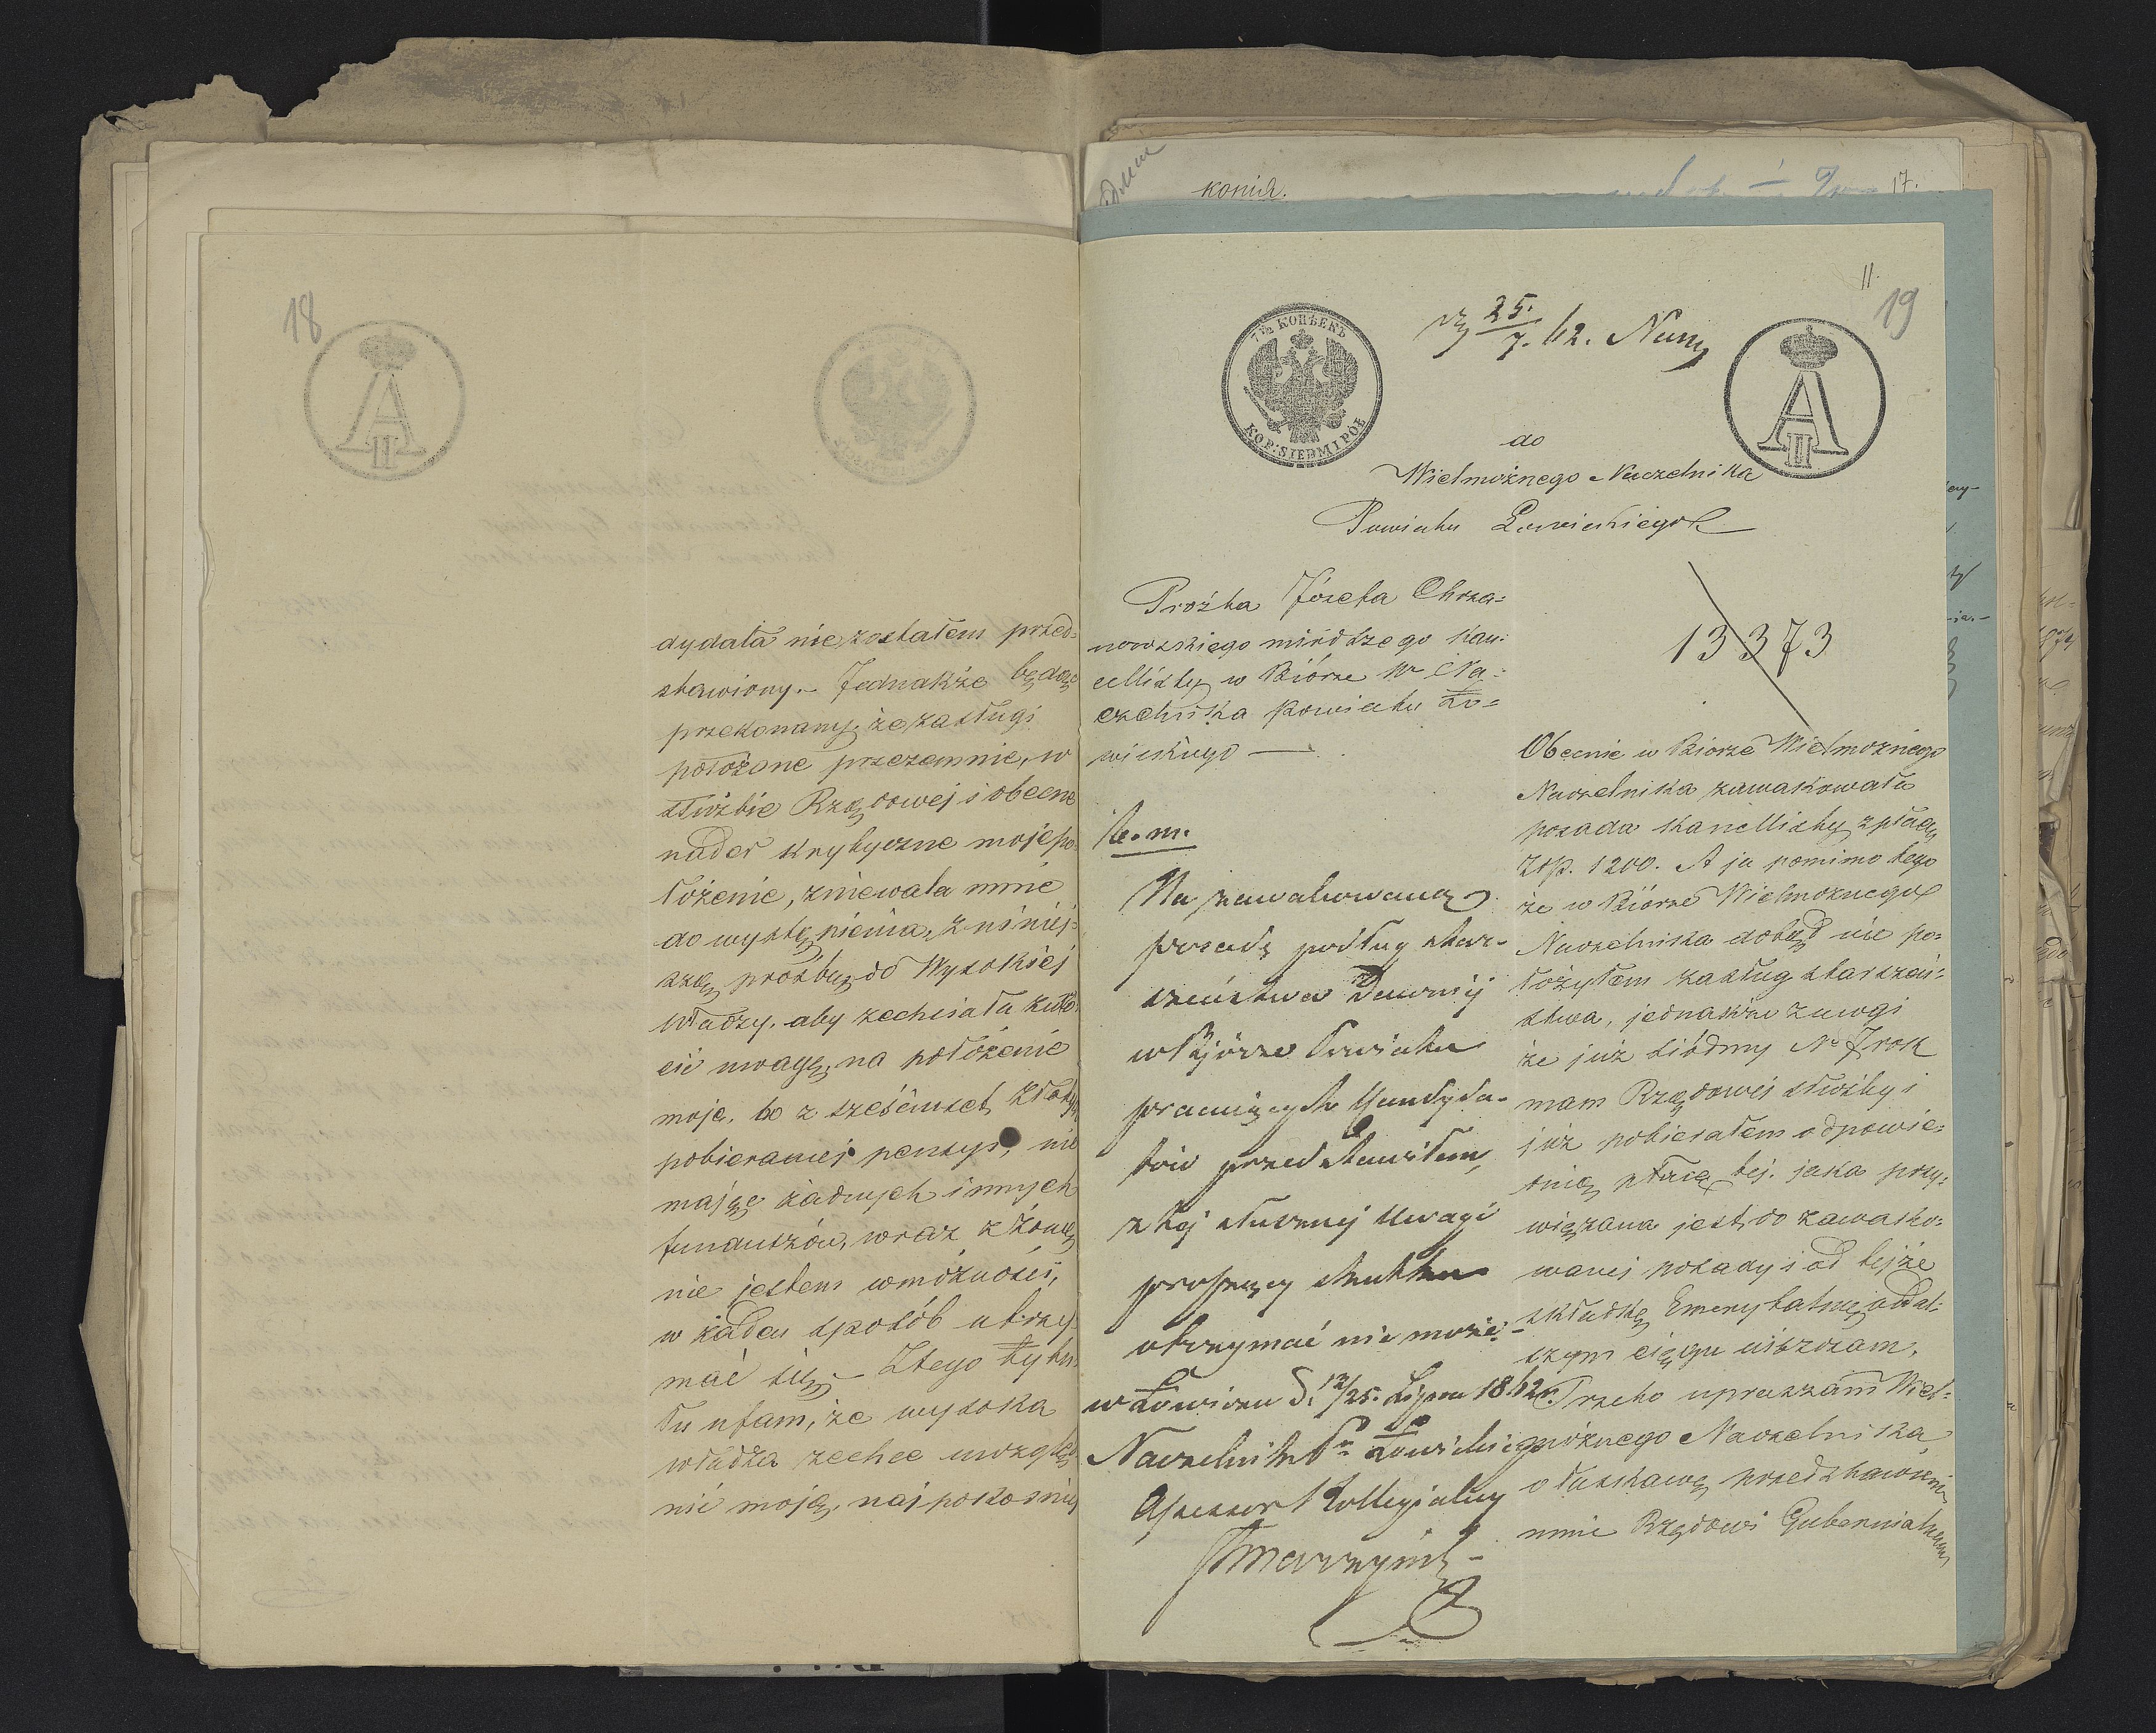 18
dydata nie zostałem przed=
stawiony.- Jednakże będąc
przekonany, że zasługi
położone przezemnie, w
służbie Rządowej i obecne
nader krytyczne moje po=
łożenie, zniewala mnie
do wystąpienia, z niniej=
szą prośbą, do Wysokiej
władzy, aby zechciała zwró=
cić uwagę, na położenie
moje, bo z sześciuset złotych
pobieranej pensyi, nie
mając żadnych innych
funduszów, wraz z żoną
nie jestem wmożności,
w żaden sposób utrzy=
mać się.- Ztego tytu=
łu ufam, że wysoka
władza zechce uwzględ=
nić moją, najpokorniej
копія.
17.
11.
19
7½ КОПѢЕКЪ
KOP: SIEDM I PÓŁ
25.
7. 62.
A II
do
Wielmożnego Naczelnika
Powiatu Łowickiego
Proźba Józefa Chrza=
nowskiego młodszego kan=
cellisty w Biórze W Na=
czelnika Powiatu Ło=
wickiego —
13373
Obecnie w Biorze Wielmożnego
Naczelnika zawakowała
posada Kancellisty z płacą
Złp. 1200. A ja pomimo tego
że w Biórze Wielmożnego
Naczelnika dotąd nie po=
łożyłem zasług starszeń=
stwa, jednakże zuwagi
że już siódmy № 7 rok
mam Rządowej służby i
już pobierałem odpowie=
dnią płacę tej. jaka przy=
wiązana jest, do zawako=
wanej posady i od tejże
składkę Emerytalną w dal=
szym ciągu uiszczam.
Przeto upraszam Wiel=
możnego Naczelnika
o łaskawe przedstawienie
mnie Rządowi Gubernialnemu
Na zawakowaną
posadę podług star-
szeństwa Dawniej
w Bjórze Powiatu
pracujących Kandyda-
tów przedstawiłem,
z tej słusznej Uwagi
proszący skutku
otrzymać nie może.-
w Łowiczu d. 13/25. Lipca 1862 r.
Naczelnik Ptu Łowickiego
Assessor Kollegialny